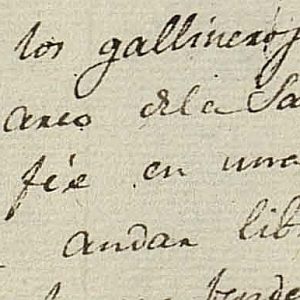 los gallineros
arco dela Sa
fée en una
andar lib